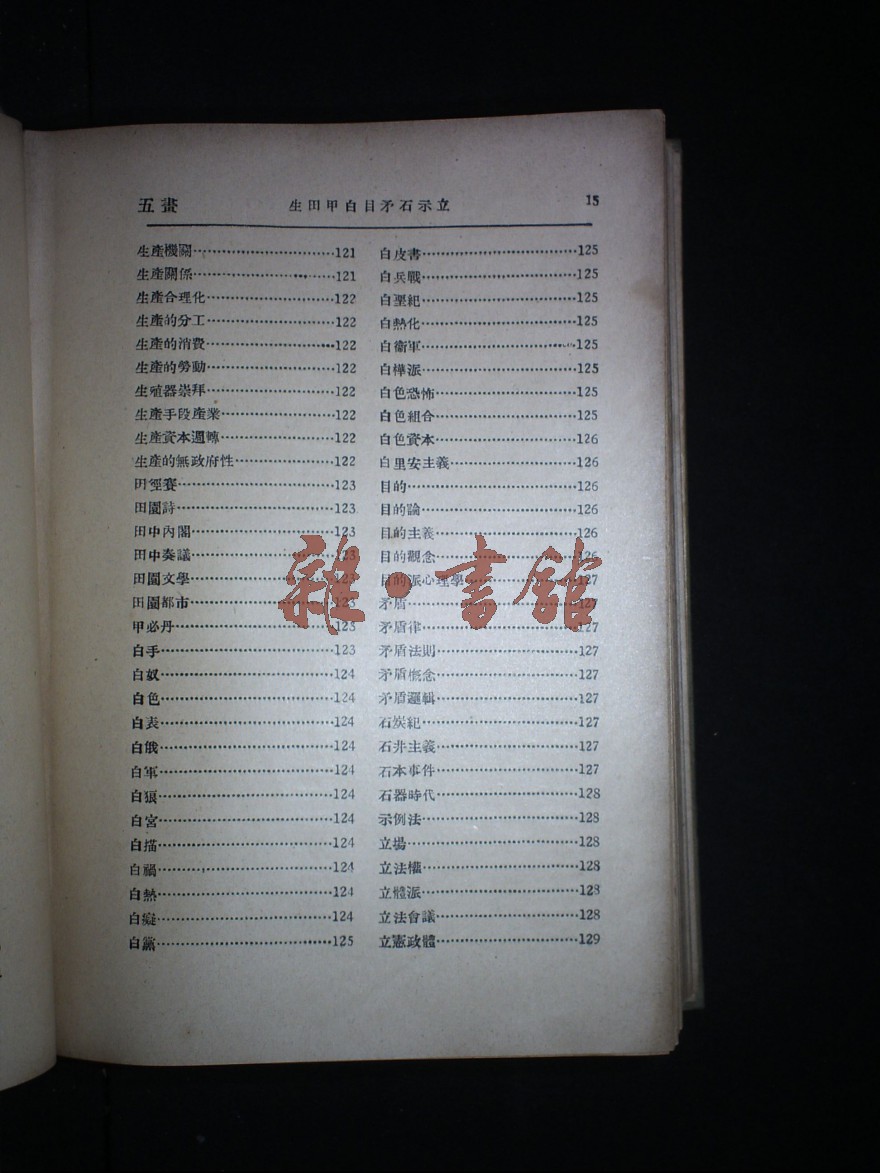 五畫 生田甲白目矛石示立 15
生產機關 121
生產關係 121
生產合理化 122
生產的分工 122
生產的消費 122
生產的勞動 122
生殖器崇拜 122
生產手段產業 122
生產資本週轉 122
生產的無政府性 122
田徑賽 123
田園詩 123
田中內閣 123
田中奏議 123
田園文學 123
田園都市 123
甲必丹 123
白手 123
白奴 124
白色 124
白表 124
白俄 124
白軍 124
白狼 124
白宮 124
白描 124
白禍 124
白熱 124
白癡 124
白黨 125
白皮書 125
白兵戰 125
白堊紀 125
白熱化 125
白衞軍 125
白樺派 125
白色恐怖 125
白色組合 125
白色資本 126
白里安主義 126
目的 126
目的論 126
目的主義 126
目的觀念 126
目的派心理學 127
矛盾 127
矛盾律 127
矛盾法則 127
矛盾概念 127
矛盾邏輯 127
石炭紀 127
石井主義 127
石本事件 127
石器時代 128
示例法 128
立場 128
立法權 128
立體派 128
立法會議 128
立憲政體 129
雜·書館